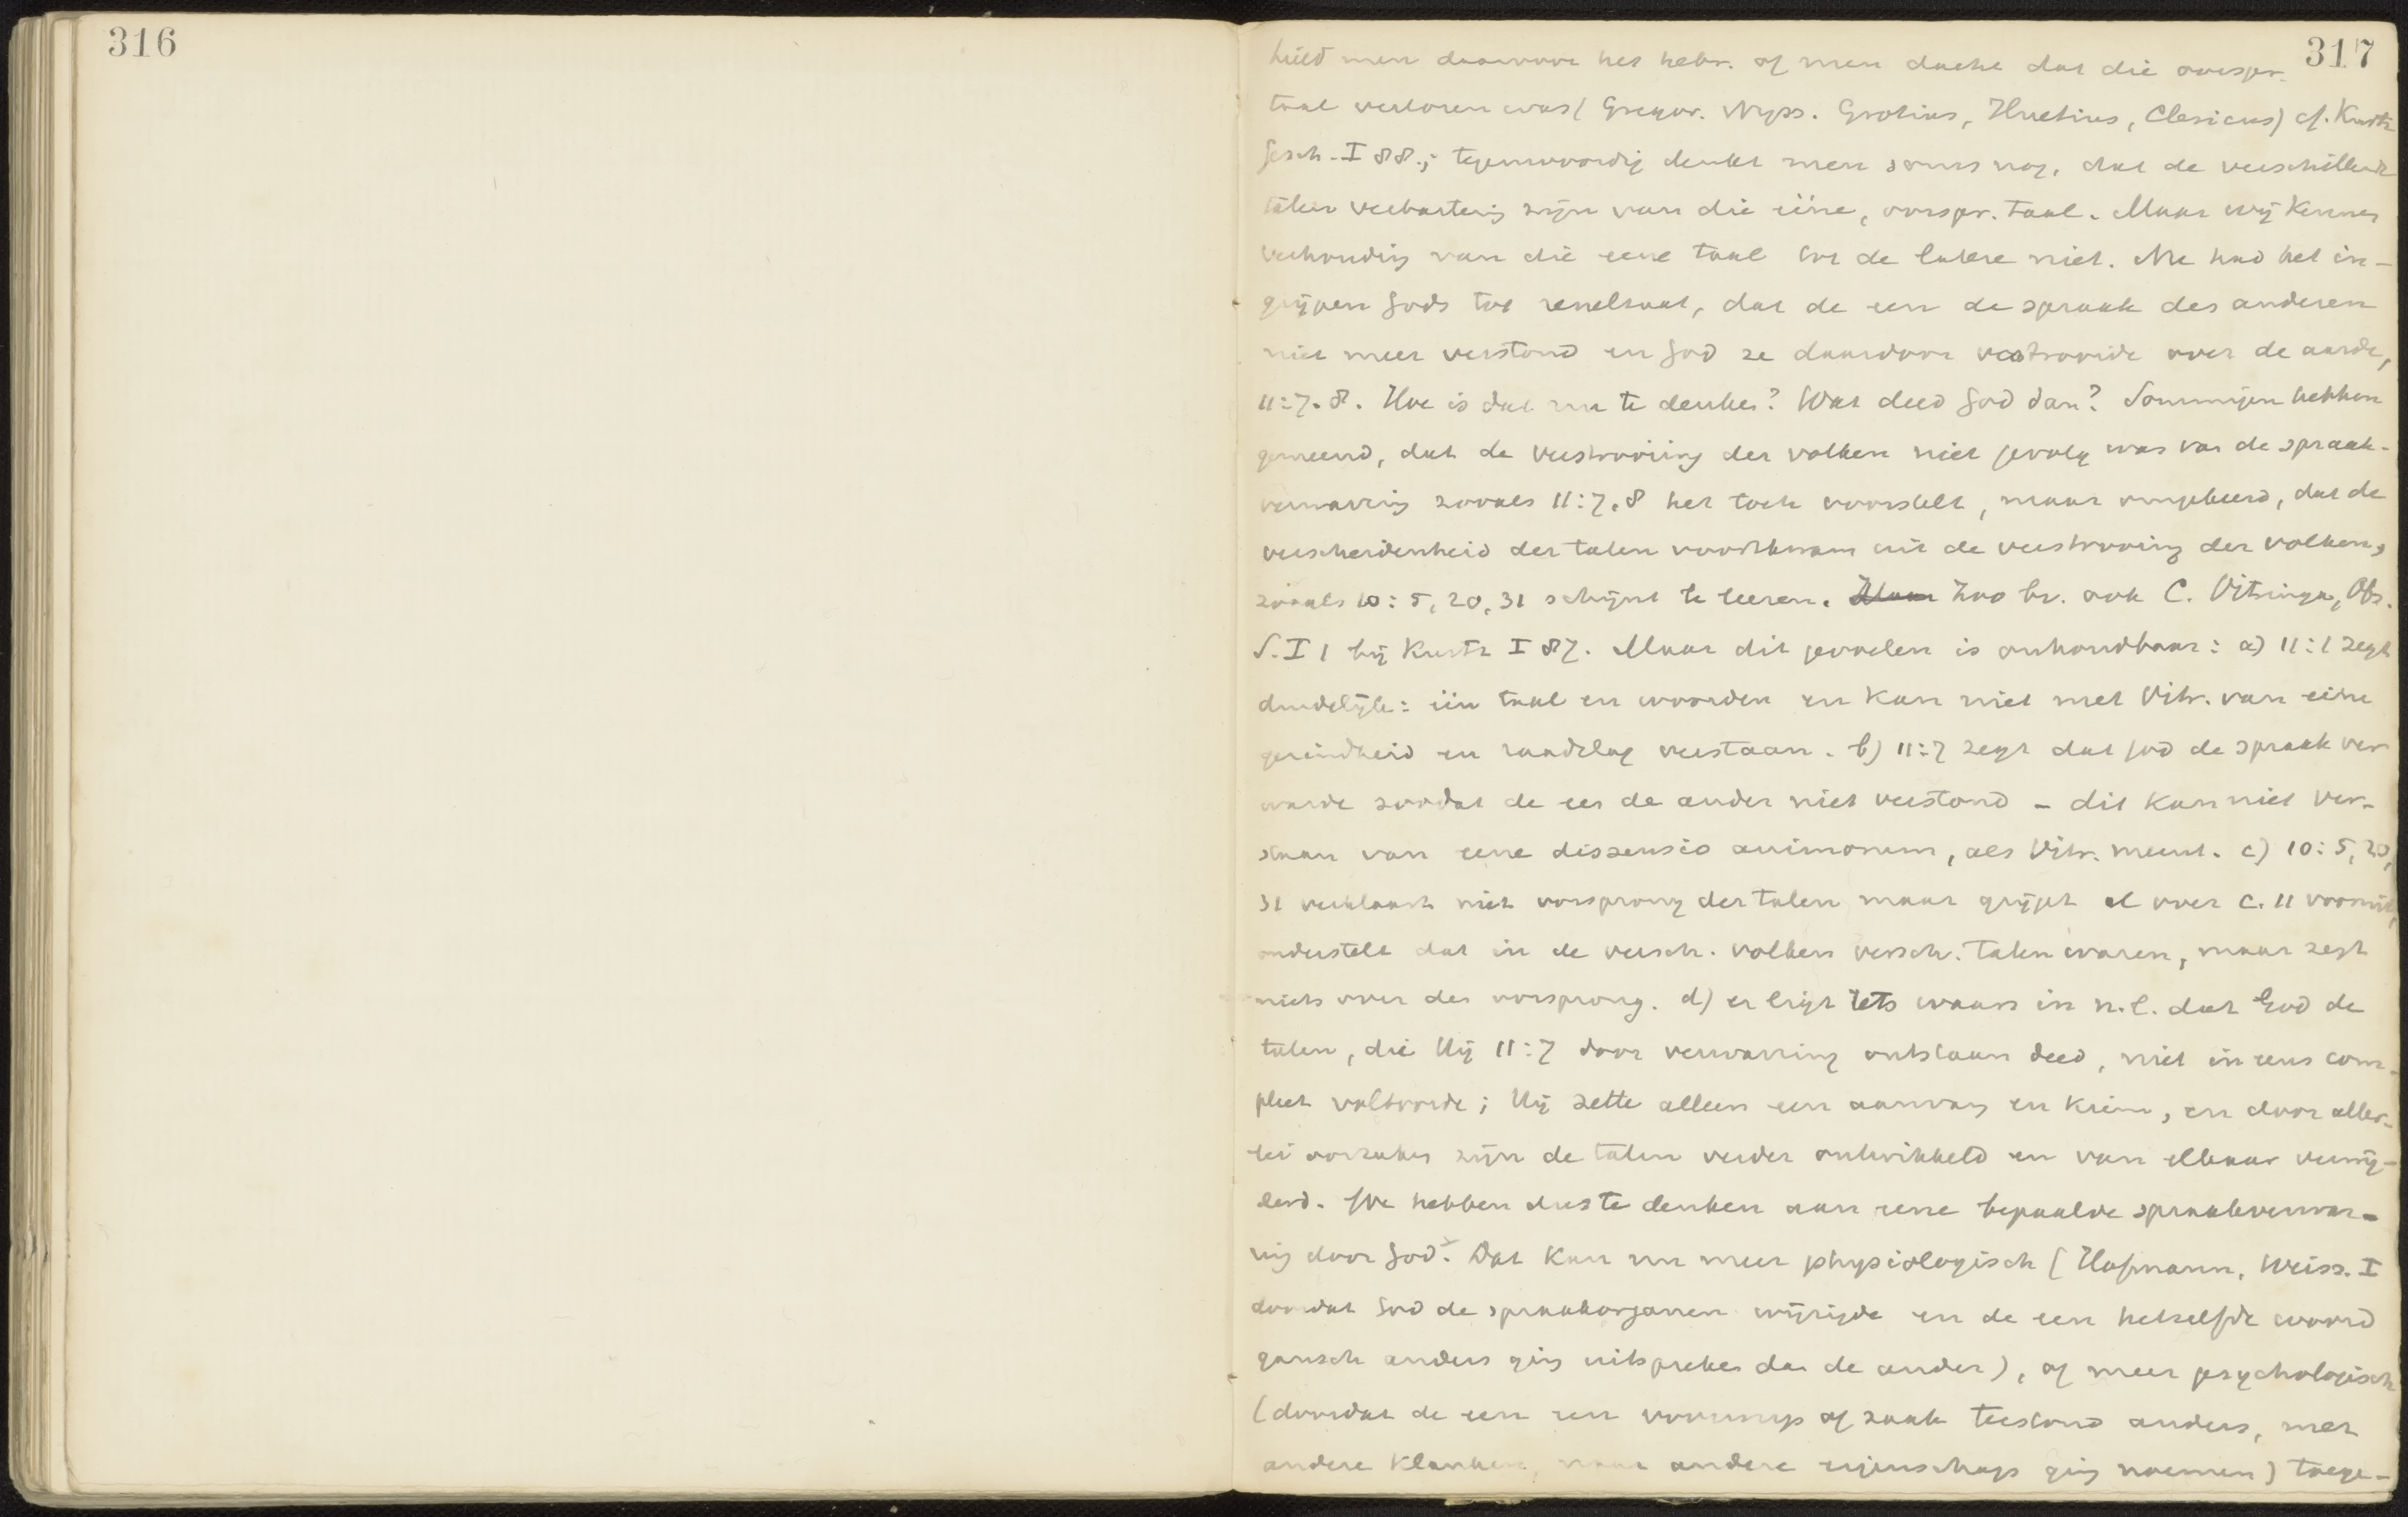 316
317
hield men daarvoor het hebr. of men dacht dat die oorspr.
taal verloren was (Gregor. Nyss. Grotius, Huetius, Clericus) cf. Kurtz
Gesch. I 88.; tegenwoordig denkt men soms nog, dat de verschillende
talen verbastering zijn van die ééne, oorspr. taal. Maar wij kennen
verhouding van die eene taal tot de latere niet. Nu had het in-
grijpen Gods tot resultaat, dat de een de spraak des anderen
niet meer verstond en God ze daardoor verstrooide over de aarde,
11:7.8. Hoe is dat nu te denken? Wat deed God dan? Sommigen hebben
gemeend, dat de verstrooiing der volken niet gevolg was van de spraak-
verwarring zooals 11:7,8 het toch voorstelt, maar omgekeerd, dat de
verscheidenheid der talen voortkwam uit de verstrooiing der volken,
zooals 10:5,20,31 schijnt te leeren. Maar Zoo bv. ook C. Vitringa, Obs.
S. I 1 bij Kurtz I 87. Maar dit gevoelen is onhoudbaar: a) 11:1 zegt
duidelijk: één taal en woorden en kan niet met Vitr. van eene
gezindheid en raadslag verstaan. b) 11:7 zegt dat God de spraak ver
warde zoodat de een de ander niet verstond – dit kan niet ver-
staan van eene dissensio animorum, als Vitr. meent. c) 10:5,20,
31 verklaart niet oorsprong der talen maar grijpt al over c. 11 vooruit,
onderstelt dat in de versch. volken versch. talen waren, maar zegt
niets over den oorsprong. d) er ligt iets waars in n.l. dat God de
talen, die Hij 11:7 door verwarring ontstaan deed, niet in eens com-
pleet voltooide; Hij zette alleen een aanvang en kiem, en door aller-
lei oorzaken zijn de talen verder ontwikkeld en van elkaar verwij-
derd. We hebben dus te denken aan eene bepaalde spraakverwar-
ring door God. Dat kan nu meer physiologisch (Hofmann, Weiss. I
doordat God de spraakorganen wijzigde en de een hetzelfde woord
gansch anders ging uitspreken dan de ander), of meer psychologisch
(doordat de een een voorwerp of zaak toestond anders, met
andere klanken, naar andere eigenschap ging noemen) toege-